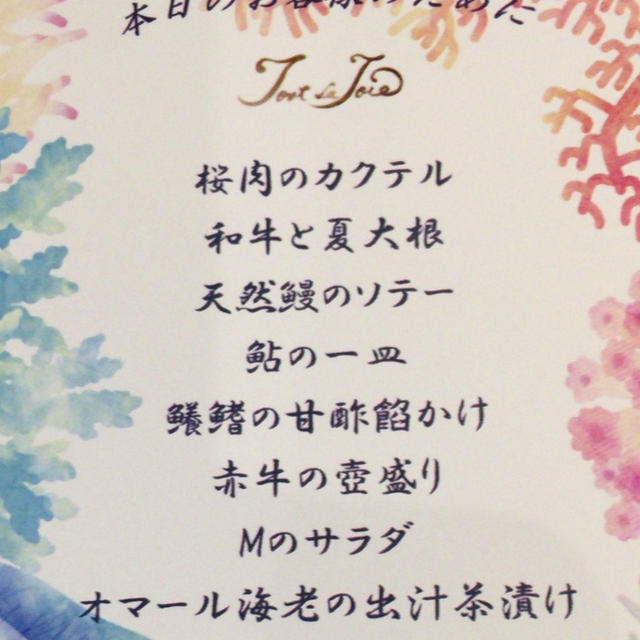 本日のお客様のために
Tant de Joie
桜肉のカクテル
和牛と夏大根
天然鰻のソテー
鮎の一皿
鱶鰭の甘酢餡かけ
赤牛の壺盛り
Mのサラダ
オマール海老の出汁茶漬け